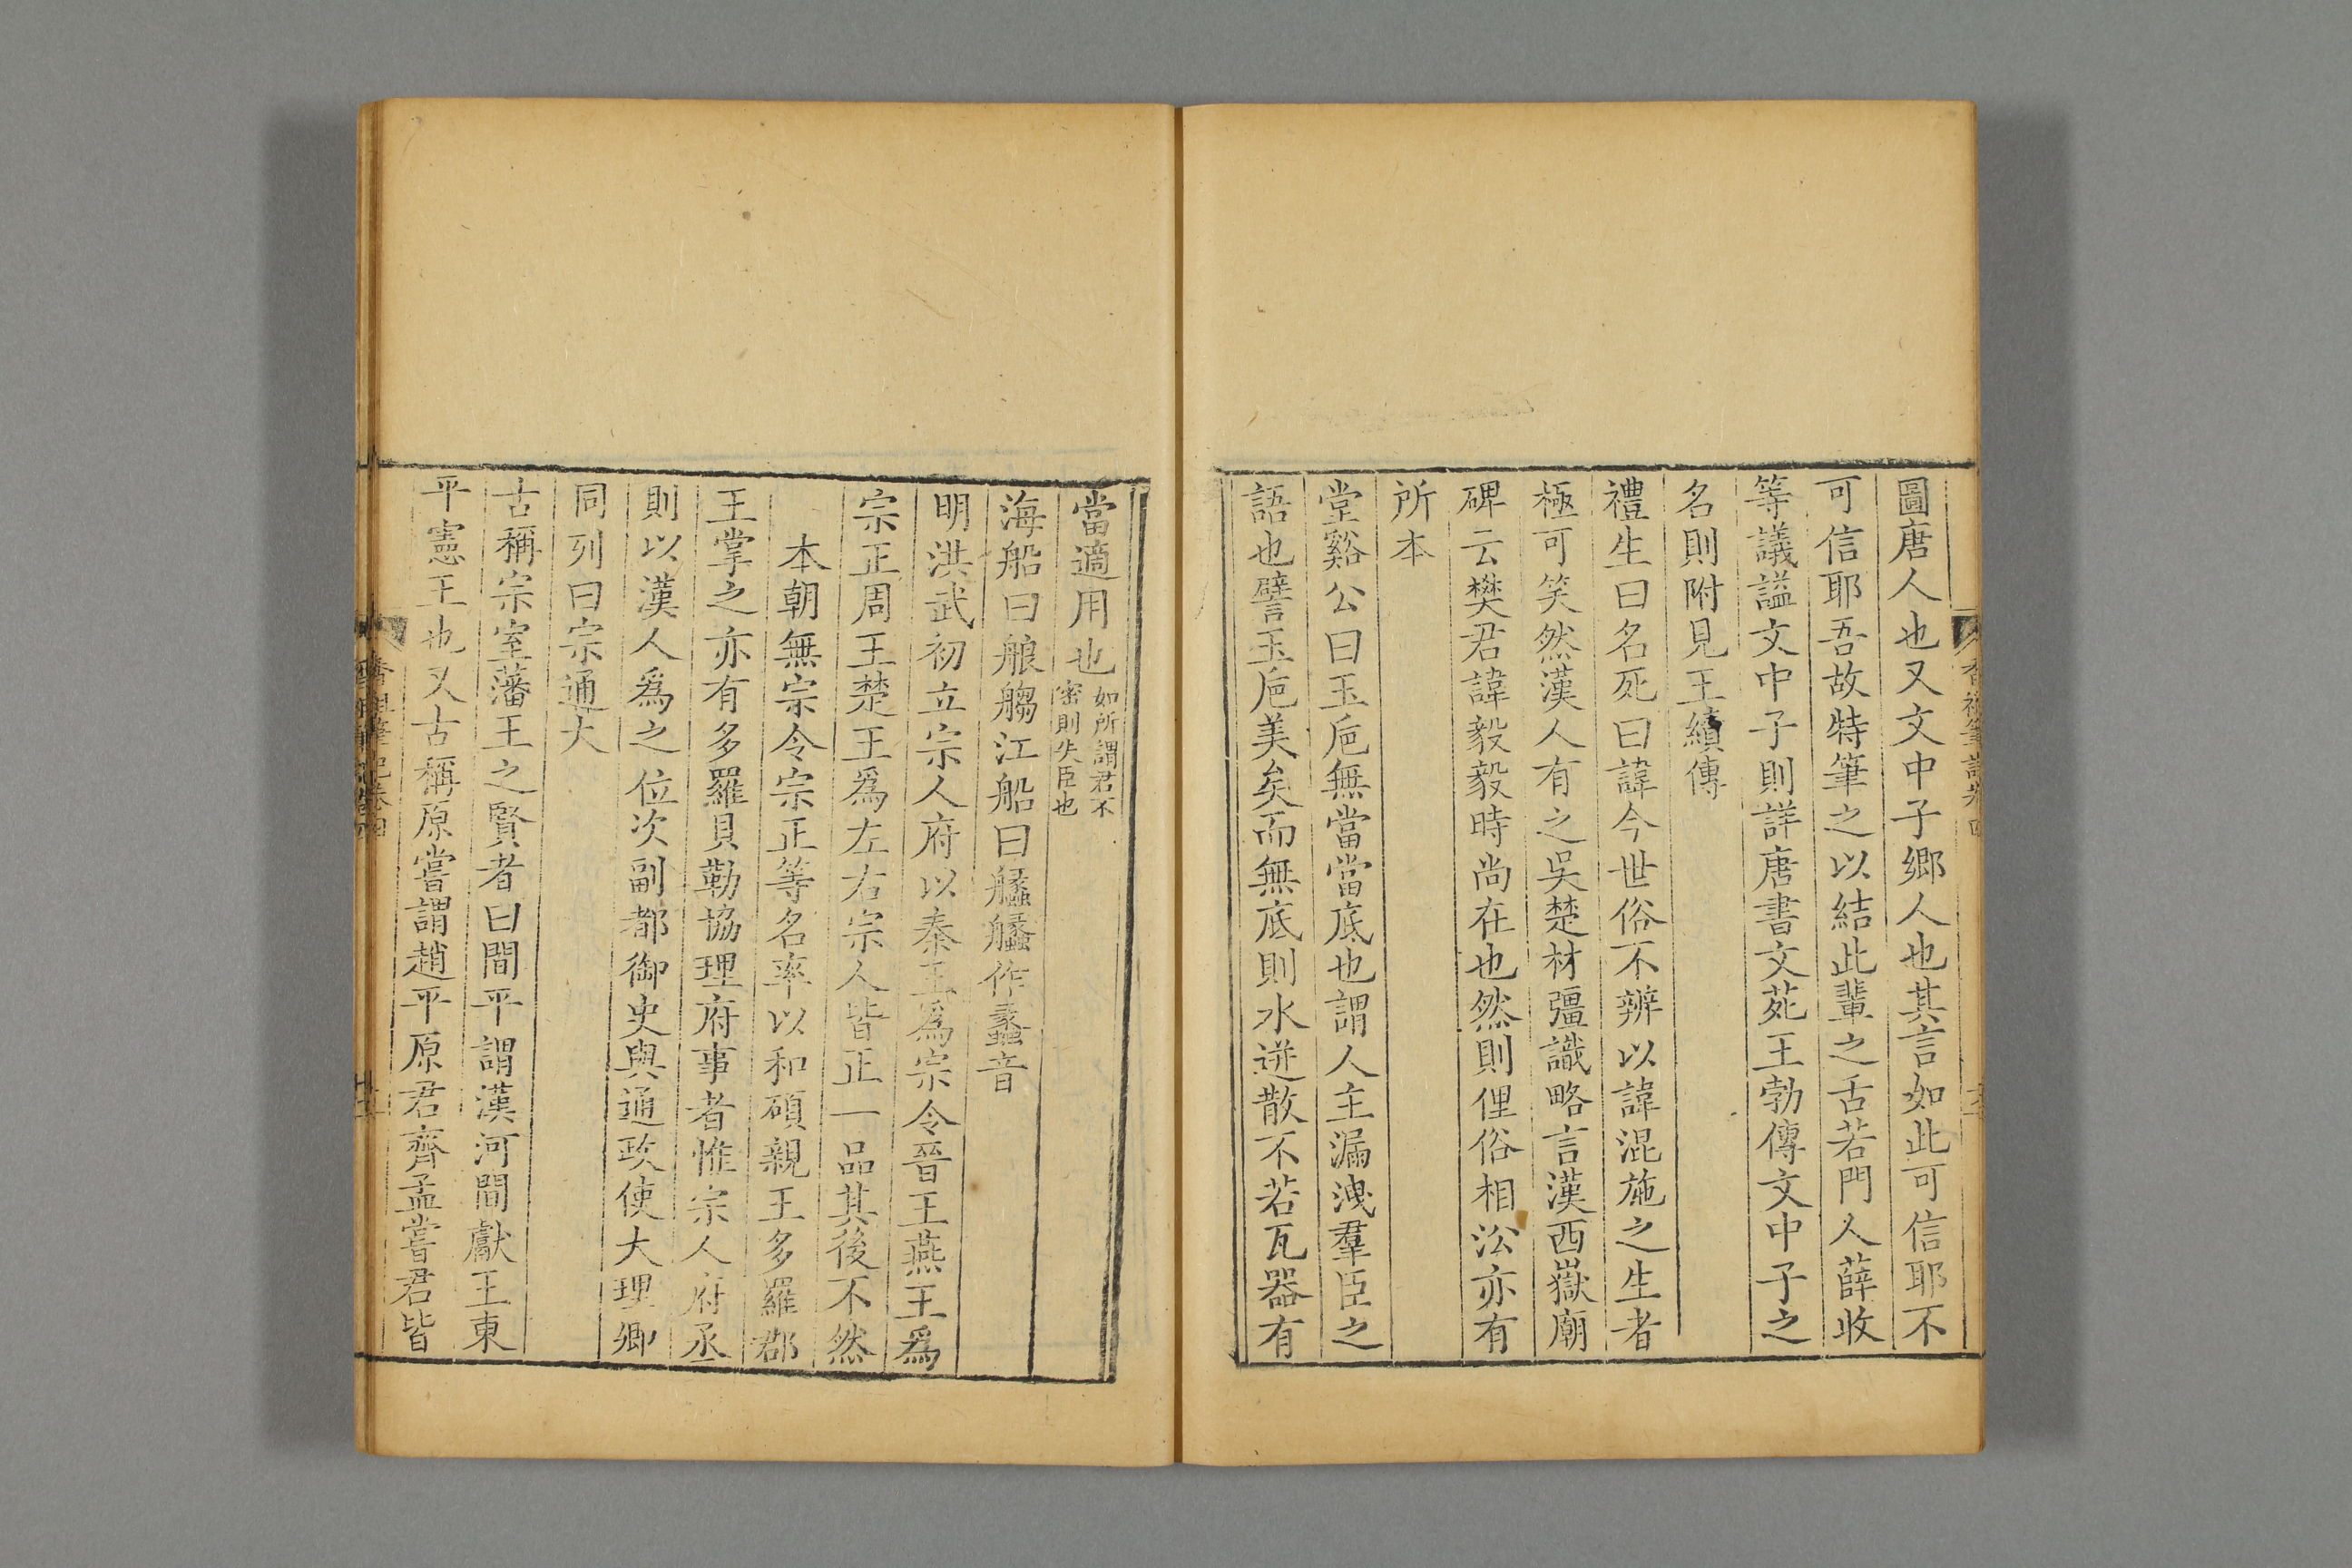 圖唐人也又文中子鄉人也其言如此可信耶不
可信耶吾故特筆之以結此輩之舌若門人薛收
等議謚文中子則詳唐書文苑王勃傳文中子之
名則附見王績傳
禮生曰名死曰諱今世俗不辨以諱混施之生者
極可笑然漢人有之吳楚材彊識略言漢西嶽廟
碑云樊君諱毅毅時尚在也然則俚俗相沿亦有
所本
堂谿公曰玉巵無當當底也謂人主漏洩羣臣之
語也譬玉巵美矣而無底則水迸散不若瓦器有
當適用也如所謂君不
密則失臣也
海船曰艆䑳江船曰艬艬作蠡音
明洪武初立宗人府以秦王爲宗令晉王燕王爲
宗正周王楚王爲左右宗人皆正一品其後不然
本朝無宗令宗正等名率以和碩親王多羅郡
王掌之亦有多羅貝勒協理府事者惟宗人府丞
則以漢人爲之位次副都御史與通政使大理卿
同列曰宗通大
古稱宗室藩王之賢者曰間平謂漢河間獻王東
平憲王也又古稱原嘗謂趙平原君齊孟嘗君皆
香祖筆記卷四